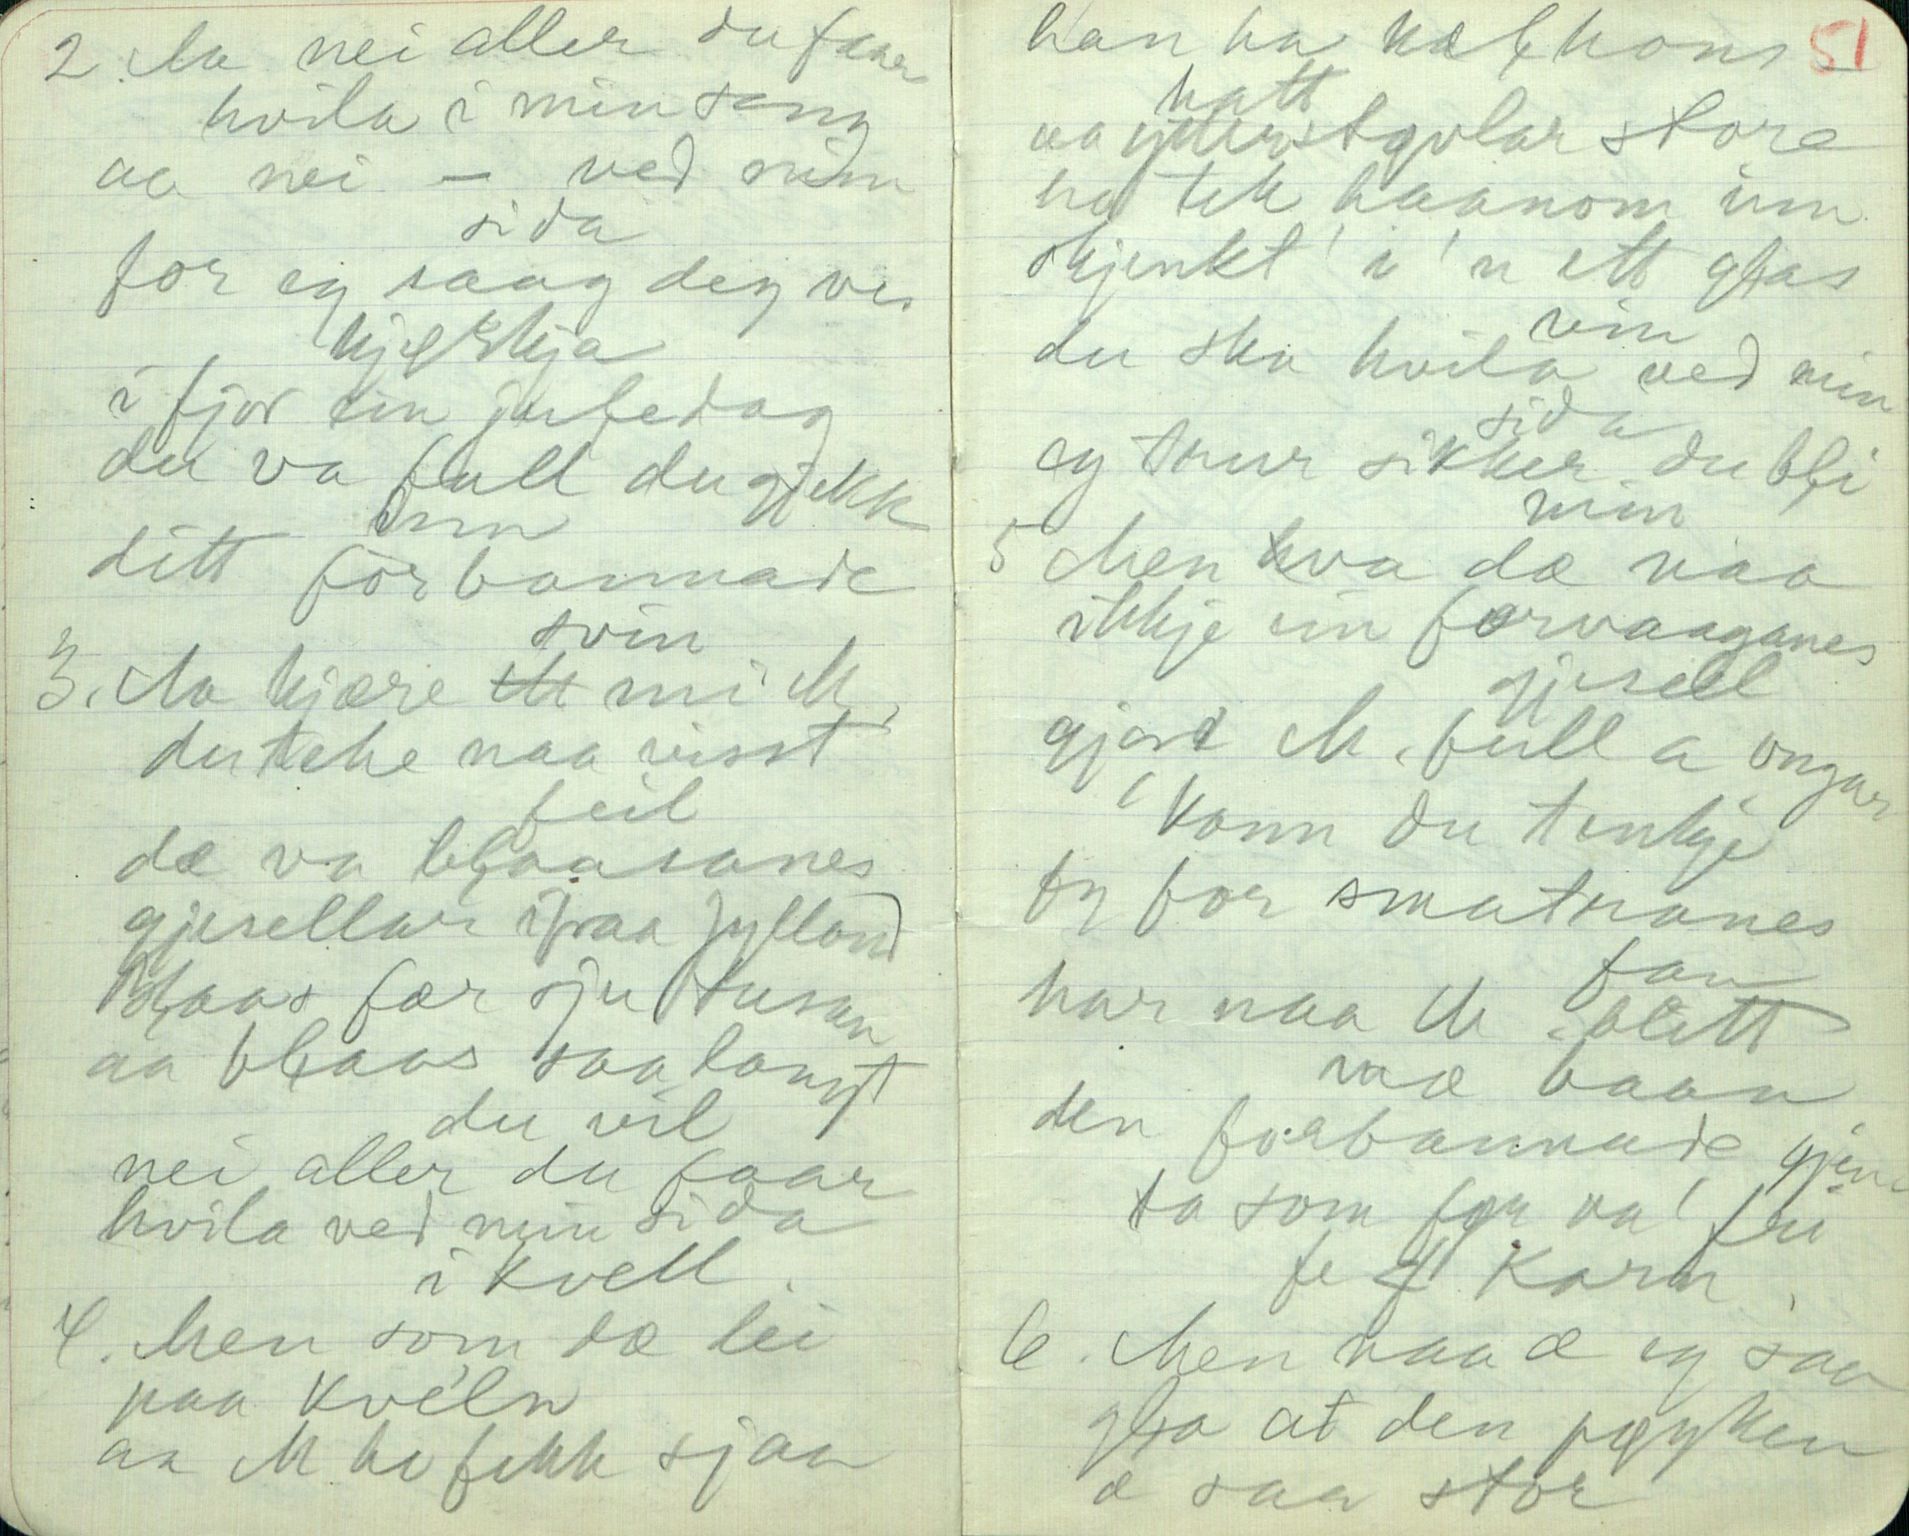 2. Aa nei aller du faar
hvila i min seng
aa nei — ved min
sida
for eg saag deg ve
kjerkja
i fjor ein juledag
du va full du gjekk
inn
ditt forbannade
svin
3. Aa kjære mi M.
du teke naa visst
feil
dæ va blaasanes
gjesellar ifraa Jylland
Blaas før sju tusan
aa blaas saa langt
du vil
nei aller du faar
hvila ved min sida
i kvell.
4. Men som dæ lei
paa kveln
aa M ho fekk sjaa
51
han ha kalhons
hatt
aa støvlar store
ho tek haanom inn
skjenkt' i'n ett glas
vin
du ska hvila ved min
sida
eg trur sikker du bli
min
5 Men va dæ naa
ikkje ein forvaaganes
gjesell
gjore M. full a ongar
kann du tenkje
ty for smatranes
fan
har naa M. blitt
mæ baan
den forbannade gjen
ta som før va' fri
fe kar'n.
6. Men naa æ eg saa
gla at den pøyken
æ saa stor